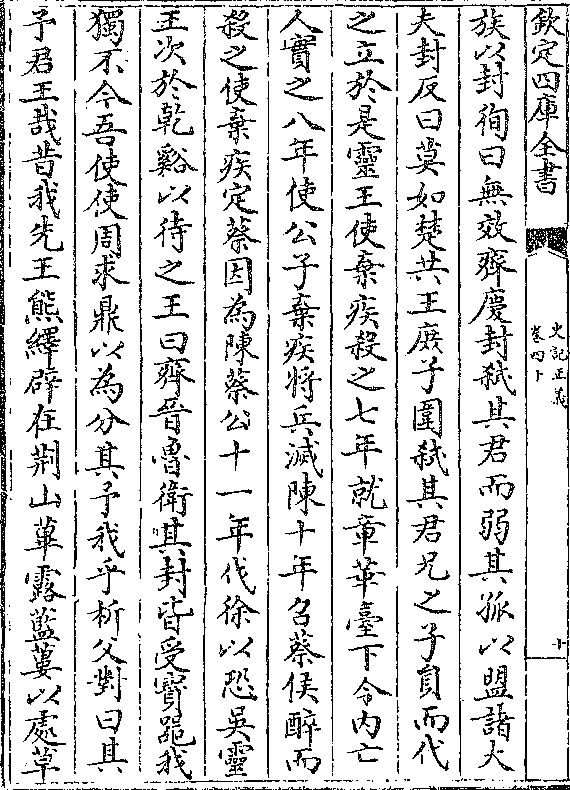 欽定四庫全書
史記正義
卷四十
十
族以封徇曰無效齊慶封弒其君而弱其孤以盟諸大
夫封反曰莫如楚共王庶子圍弒其君兄之子員而代
之立於是靈王使棄疾殺之七年就章華臺下令内亡
人實之八年使公子棄疾將兵滅陳十年召蔡侯醉而
殺之使棄疾定蔡因為陳蔡公十一年伐徐以恐吳靈
王次於乾谿以待之王曰齊晉魯衛其封皆受寶器我
獨不今吾使使周求鼎以為分其予我乎析父對曰其
予君王哉昔我先王熊繹辟在荆山蓽露藍蔞以處草